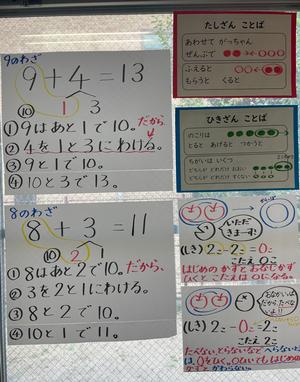 9のわざ
9+4=13
⑩ 1 3
①9はあと1で10。だから
②4を1と3にわける。
③9と1で10。
④10と3で13。
8のわざ
8+3=11
⑩ 2 1
①8はあと2で10。だから、
②3を2と1にわける。
③8と2で10。
④10と1で11。
たしざん ことば
あわせて がっちゃん
ぜんぶで
ふえると
もらうと くると
ひきざん ことば
のこりは
とると あげると つかうと
ちがいは いくつ
どちらがどれだけ おおい
どちらがどれだけ すくない
いただきまーす!
(しき) 2-2=0
こたえ 0こ
はじめの かずと おなじかず
ひくと こたえは 0になる。
(しき) 2-0=2
こたえ 2こ